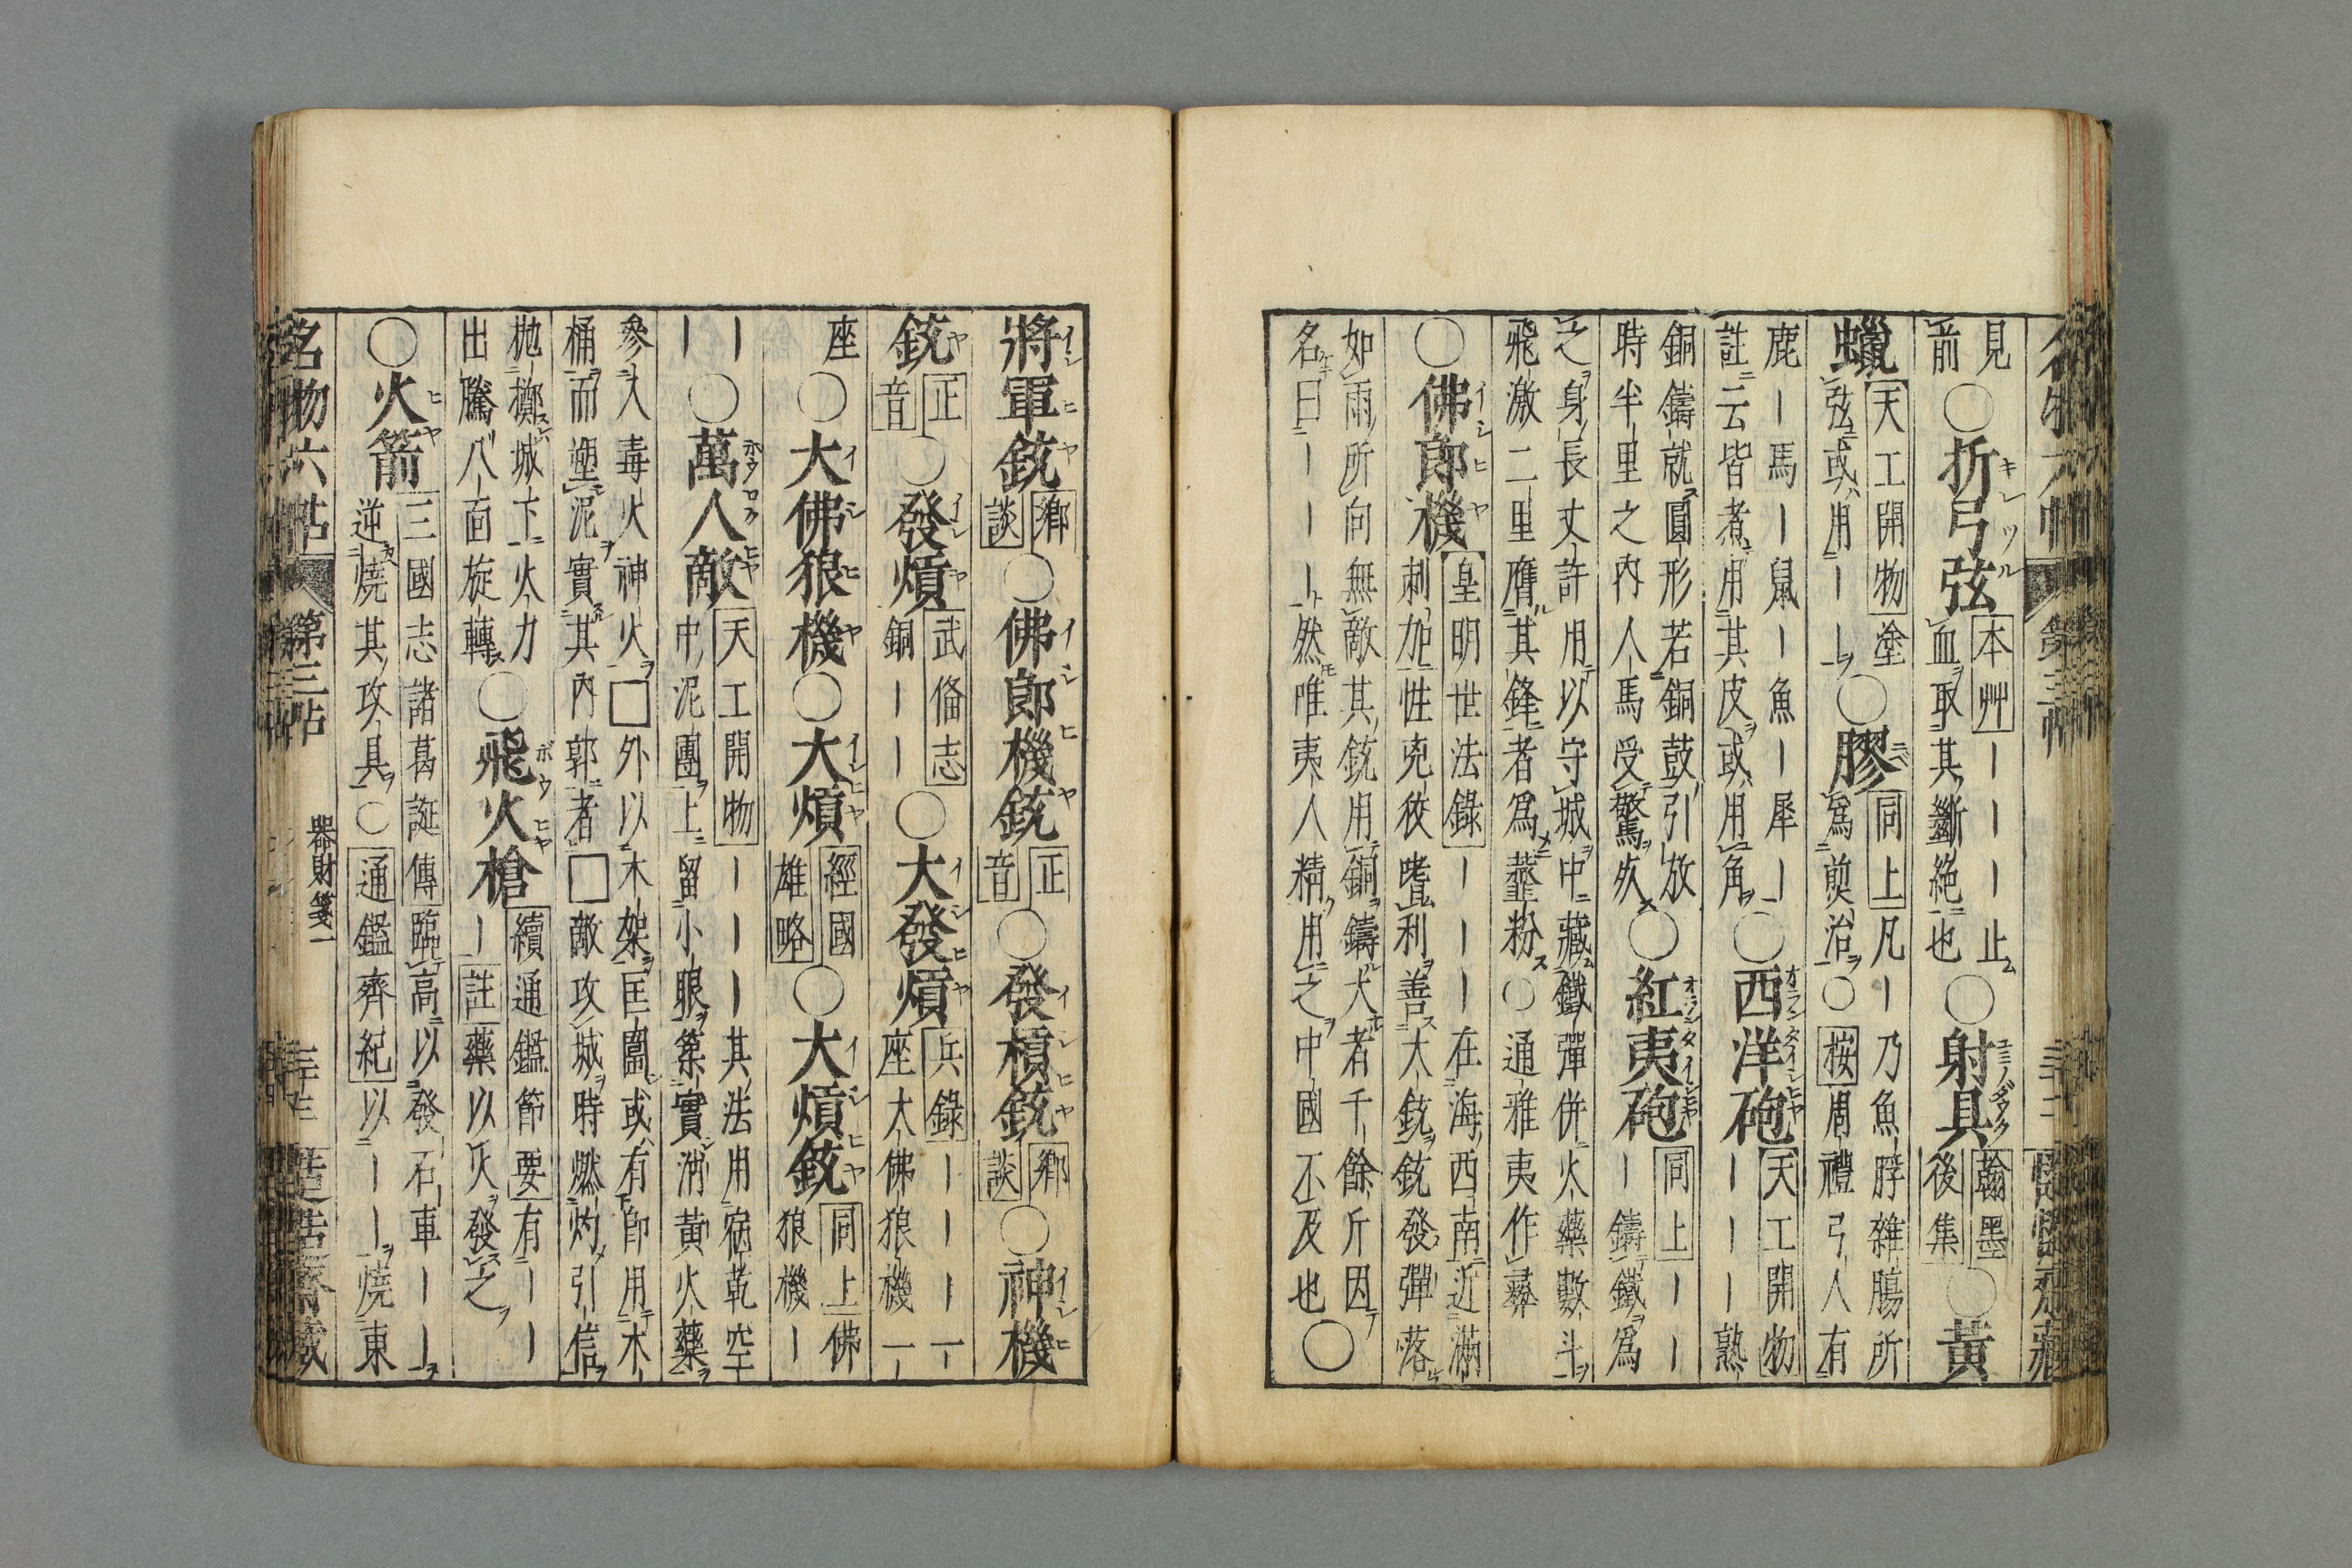 見前○折弓弦 本艸｜｜｜止血取其斷絕也○射具 翰墨後集○黃
蠟 天工開物塗弦或用｜｜○膠 同上凡｜乃魚脬雜膓所爲煎治○按周禮弓人有
鹿｜馬｜鼠｜魚｜犀｜註云皆煮用其皮或用角○西洋砲 天工開物｜｜｜熟
銅鑄就圓形若銅鼓引放時半里之內人馬受驚死○紅夷砲 同上｜｜｜鑄鐵爲
之身長丈許用以守城中藏鐵彈併火藥數斗飛激二里膺其鋒者爲虀粉○通雅夷作彝
○佛郎機 皇明世法錄｜｜｜在海西南近滿剌加性兇狡嗜利善大銃銃發彈落
如雨所向無敵其銃用銅鑄大者千餘斤因名曰｜｜｜然唯夷人精用之中國不及也○
將軍銃 鄉談○佛郎機銃 正音○發槓銃 鄉談○神機
銃 正音○發熕 武俻志銅｜｜○大發熕 兵錄｜｜｜一座大佛狼機一
座○大佛狼機○大熕 經國雄略○大熕銃 同上佛狼機｜
｜｜○萬人敵 天工開物｜｜｜其法用宿乾空中泥團上留小眼築實硝黃火藥
參入毒火神火□外以木架匡圍或有卽用木桶而塑泥實其內郭者□敵攻城時燃灼引信
拋擲城下火力出騰八面旋轉○飛火槍 續通鑑節要有｜｜｜註藥以火發之
○火箭 三國志諸葛誕傳臨高以發石車｜｜逆燒其攻具○通鑑齊紀以｜｜燒東
名物六帖 第三帖 器財箋一 三十三